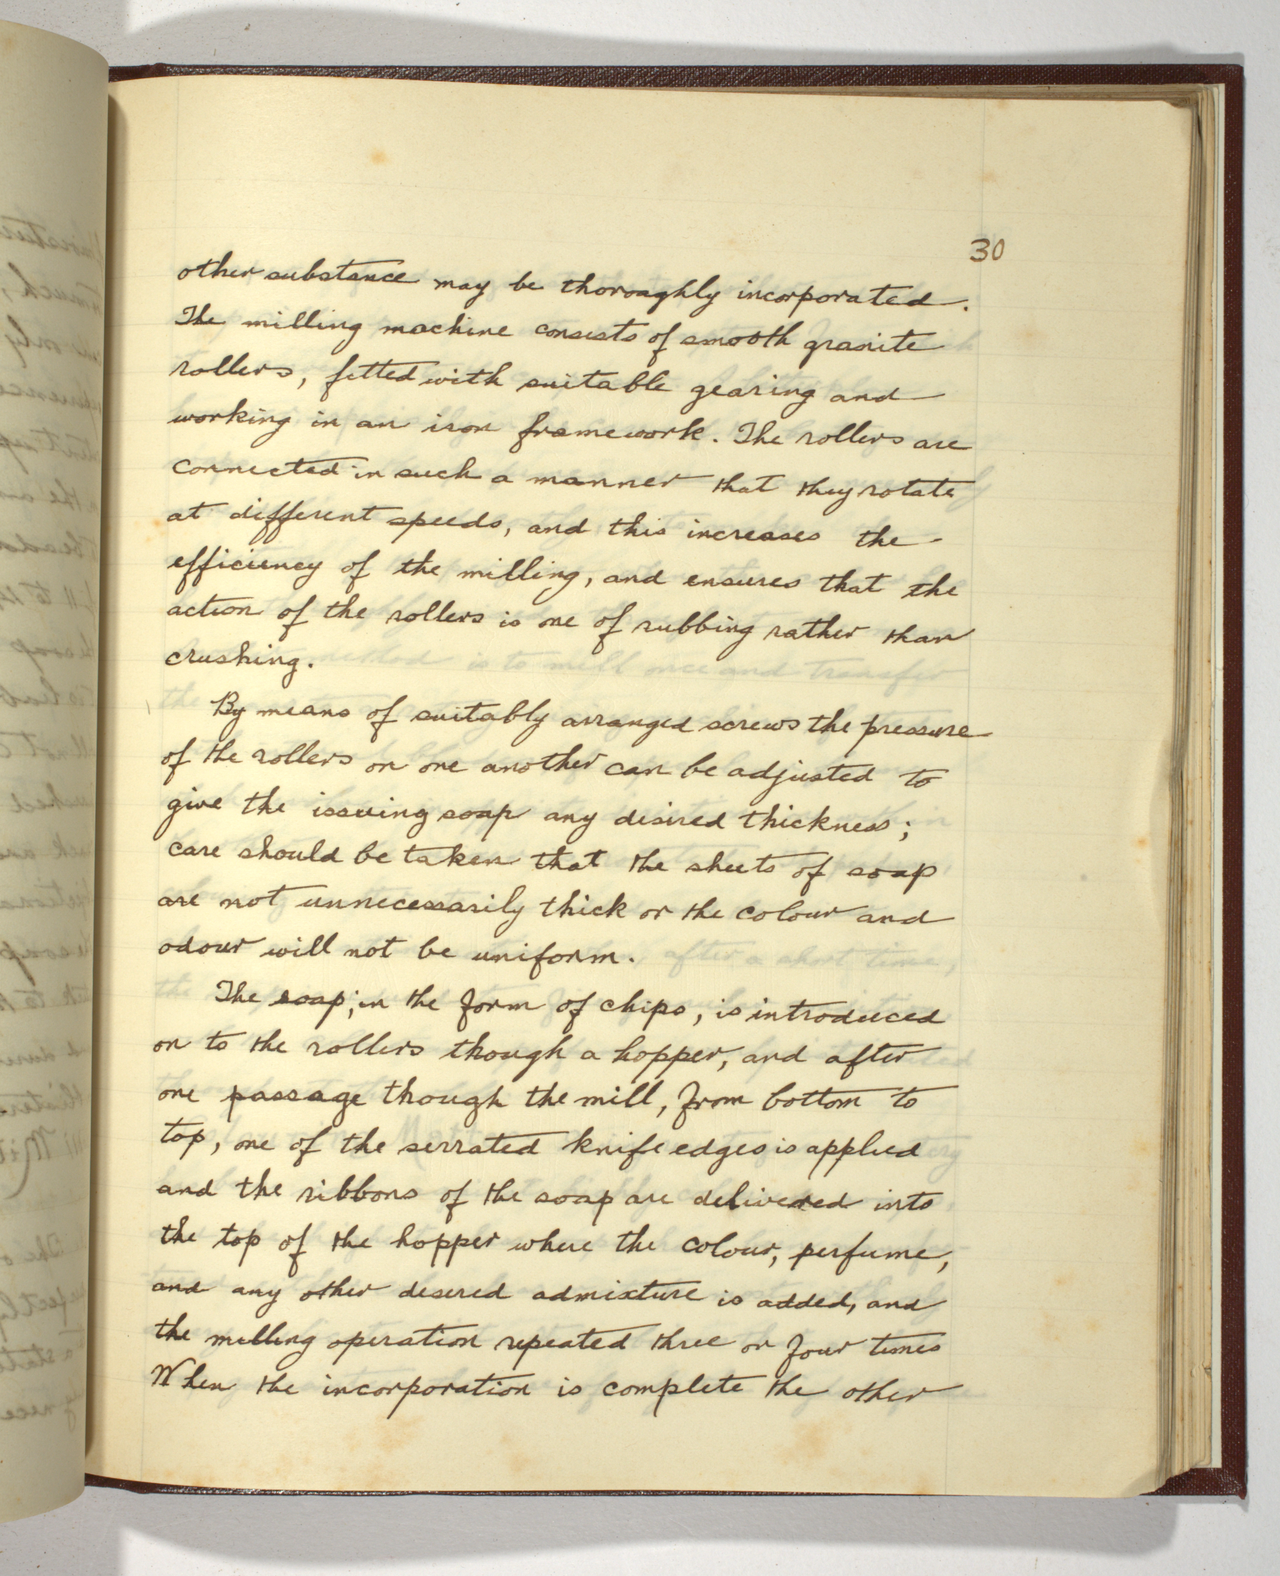 30
other substance may be thoroughly incorporated.
The milling machine consists of smooth granite
rollers, fitted with suitable gearing and
working in an iron framework. The rollers are
connected in such a manner that they rotate
at different speeds, and this increases the
efficiency of the milling, and ensures that the
action of the rollers is one of rubbing rather than
crushing.
By means of suitably arranged screws the pressure
of the rollers on one another can be adjusted to
give the issuing soap any desired thickness;
care should be taken that the sheets of soap
are not unnecessarily thick or the colour and
odour will not be uniform.
The soap, in the form of chips, is introduced
on to the rollers though a hopper, and after
one passage though the mill, from bottom to
top, one of the serrated knife edges is applied
and the ribbons of the soap are delivered into
the top of the hopper where the colour, perfume,
and any other desired admixture is added, and
the milling operation repeated three or four times
When the incorporation is complete the other